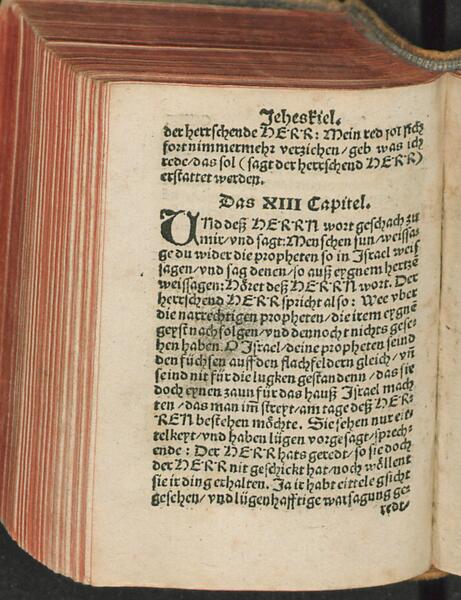 Jeheskiel.
der herrschende HERR: Mein red sol sich
fort nimmermehr verziehen/ geb was ich
rede/ das sol (sagt der herrschend HERR)
erstattet werden.
Das XIII Capitel.
UNd deß HERRN wort geschach zu
mir/ vnd sagt: Menschen sun/ weissa-
ge du wider die propheten so in Israel weis
sagen/ vnd sag denen/ so auß eygnem hertzē
weissagen: Höret deß HERRN wort. Der
herrschend HERR spricht also: Wee vber
die narrechtigen propheten/ die irem eygnē
geyst nachfolgen/ vnd dennocht nichts gese-
hen haben. O Israel/ deine propheten seind
den füchsen auff den flachfeldern gleich/ vñ
seind nit für die lugken gestandenn/ das sie
doch eynen zaun für das hauß Israel mach
ten/ das man im̄ streyt/ am tage deß HER-
REN bestehen möchte. Sie sehen nur eit-
telkeyt/ vnd haben lügen vorgesagt/ sprech-
ende: Der HERR hats geredt/ so sie doch
der HERR nit geschickt hat/ noch wöllent
sie ir ding erhalten. Ja ir habt eittele gsicht
gesehen/ vnd lügenhafftige warsagung ge-
redt/